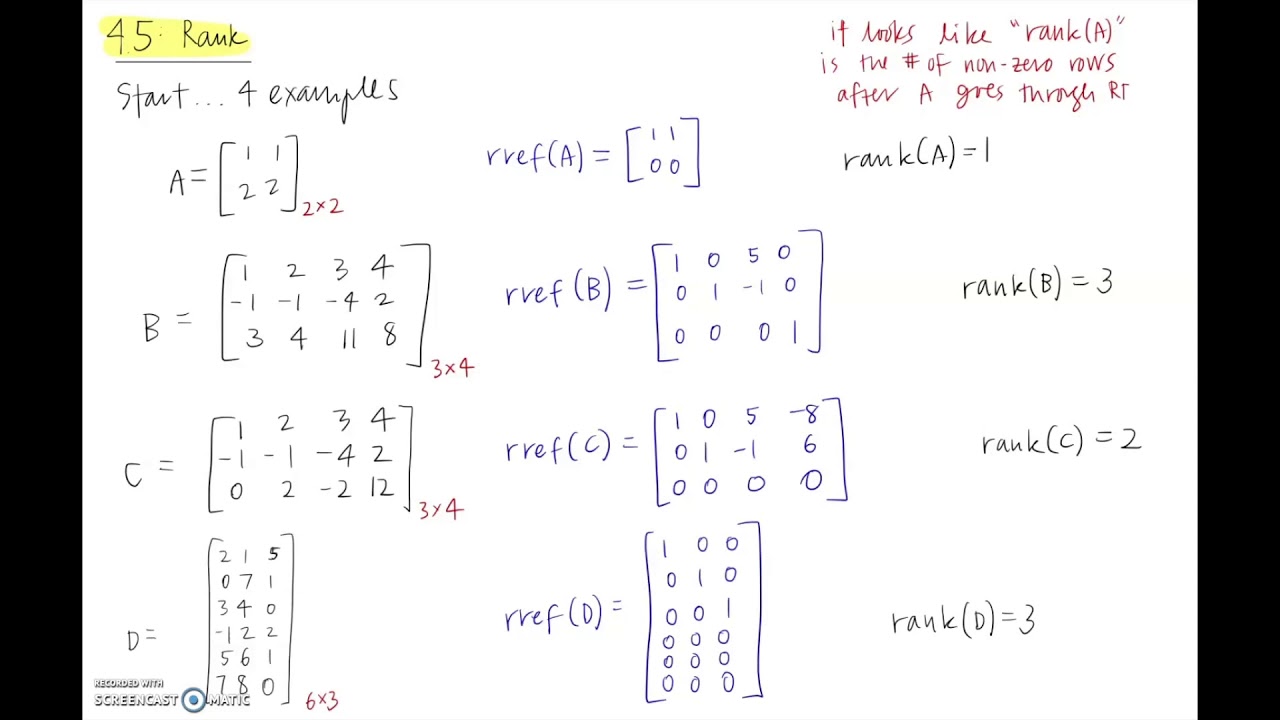 4.5: Rank
it looks like "rank(A)"
is the # of non-zero rows
after A goes through RT
Start... 4 examples
A = [ 1 1
2 2 ] 2×2
rref(A) = [ 1 1
0 0 ]
rank(A) = 1
B = [ 1 2 3 4
-1 -1 -4 2
3 4 11 8 ] 3×4
rref(B) = [ 1 0 5 0
0 1 -1 0
0 0 0 1 ]
rank(B) = 3
C = [ 1 2 3 4
-1 -1 -4 2
0 2 -2 12 ] 3×4
rref(C) = [ 1 0 5 -8
0 1 -1 6
0 0 0 0 ]
rank(C) = 2
D = [ 2 1 5
0 7 1
3 4 0
-1 2 2
5 6 1
7 8 0 ] 6×3
rref(D) = [ 1 0 0
0 1 0
0 0 1
0 0 0
0 0 0
0 0 0 ]
rank(D) = 3
RECORDED WITH
SCREENCAST MATIC